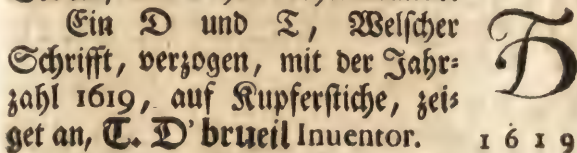 Ein D und T, Welscher
Schrifft, verzogen, mit der Jahr=
zahl 1619, auf Kupferstiche, zei=
get an, T. D'brueil Inuentor.
1619